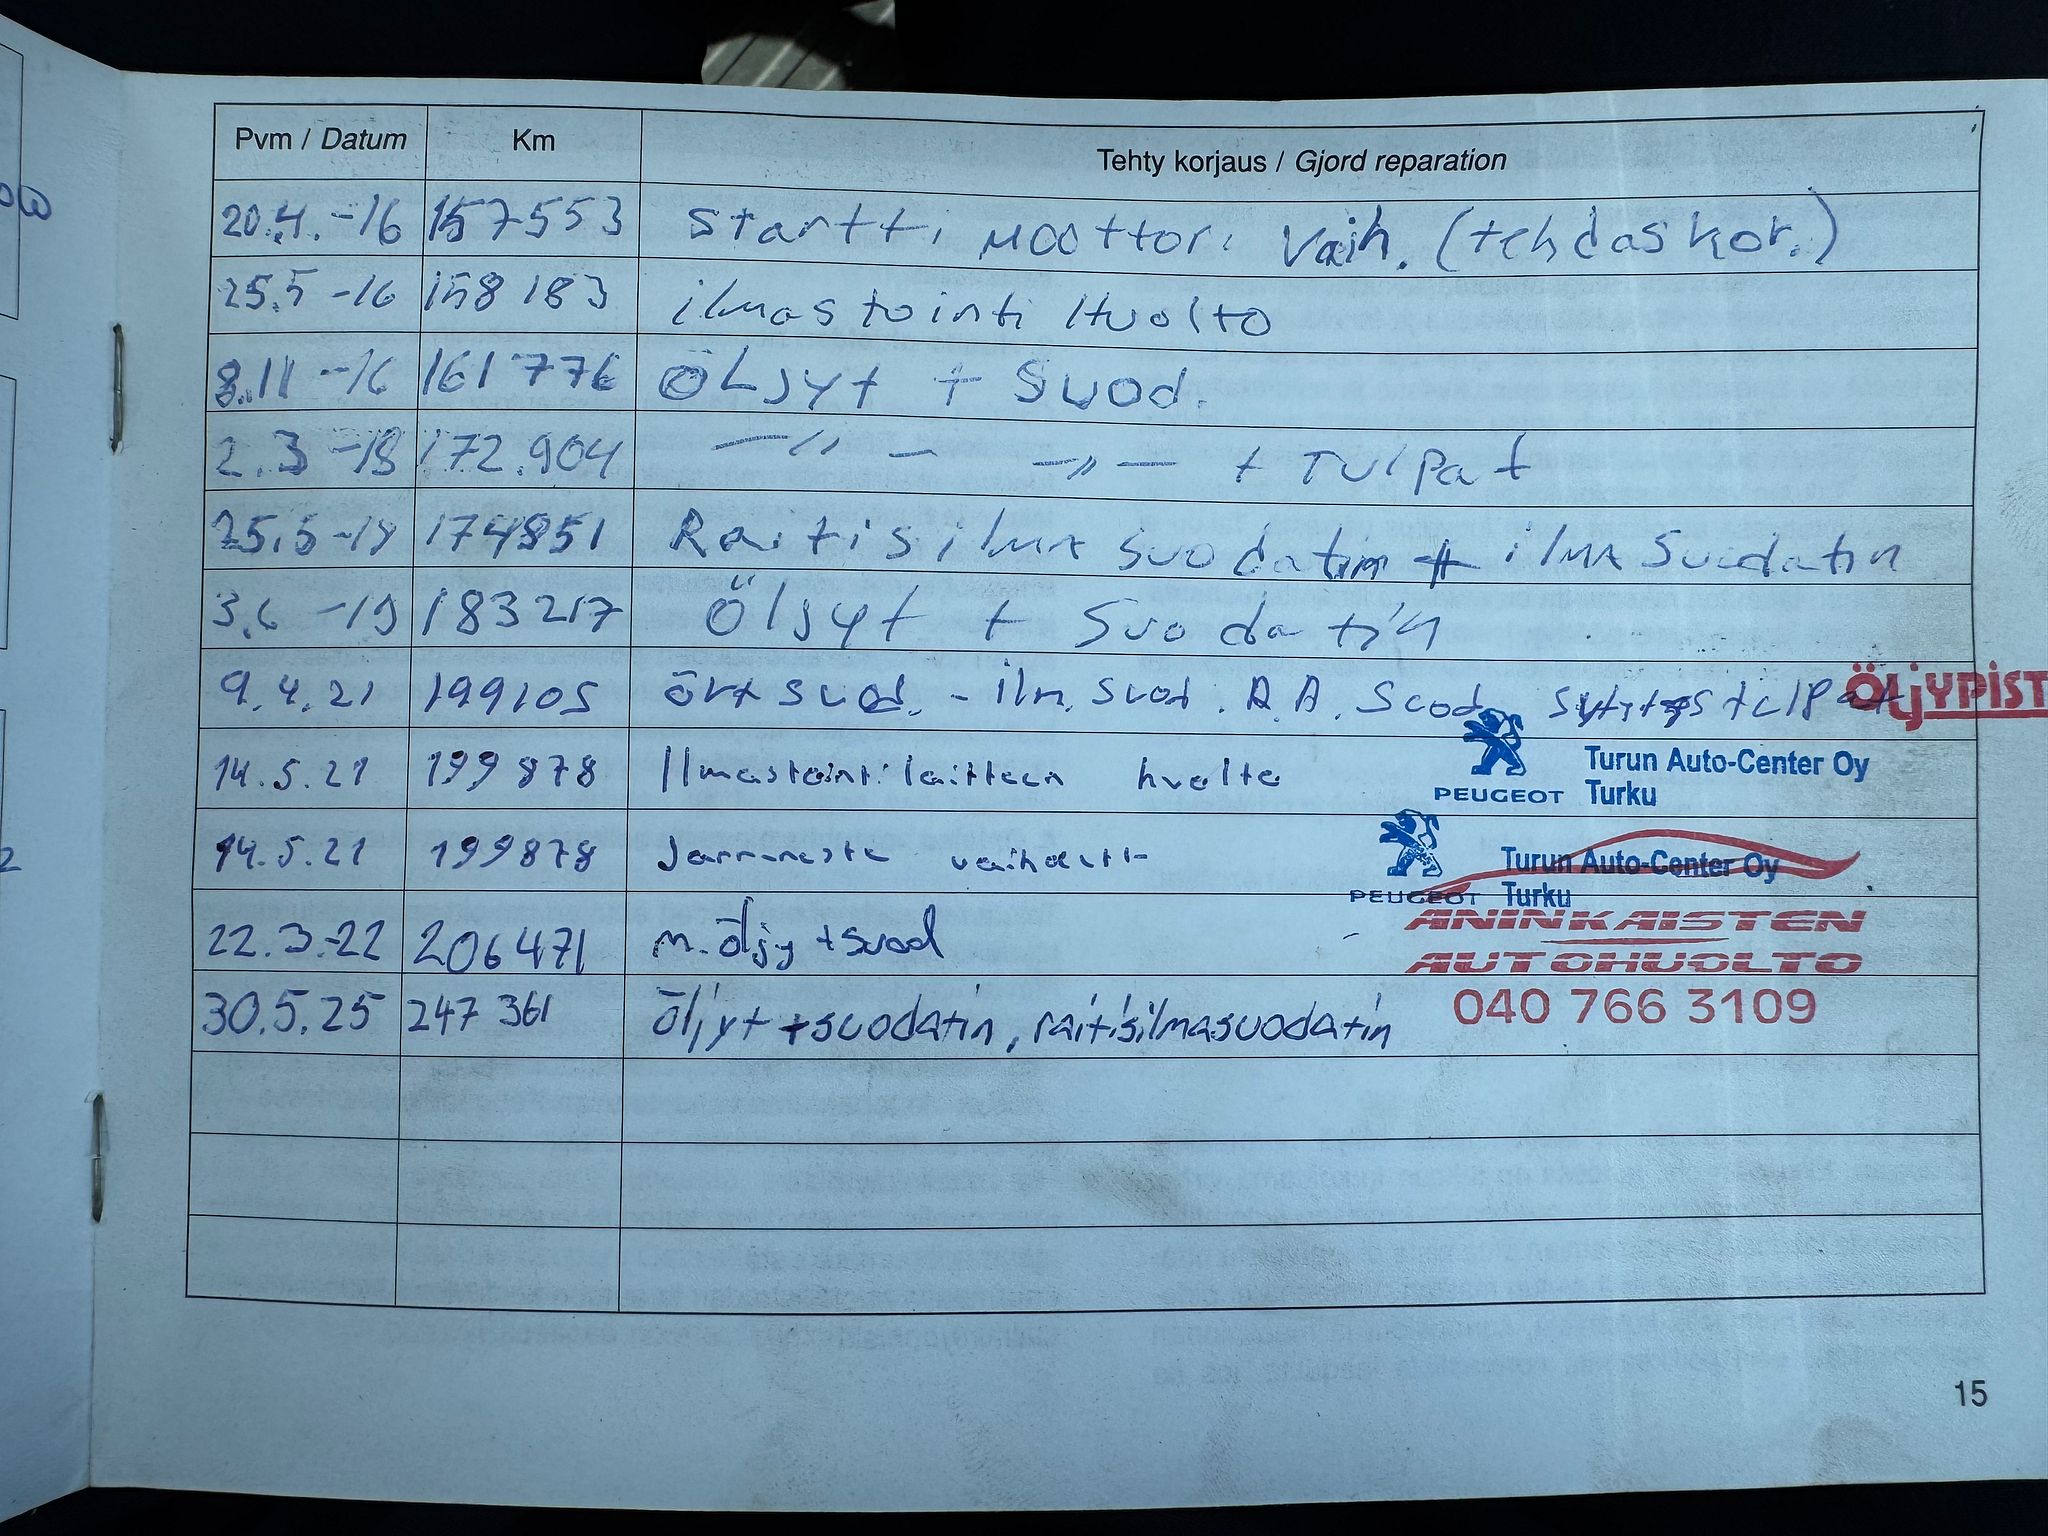 Pvm / Datum Km Tehty korjaus / Gjord reparation
20.4.-16 157553 Startti moottori vaih. (tehdaskor.)
25.5-16 158183 ilmastointi Huolto
8.11-16 161776 Öljyt + Suod.
2.3-18 172.904 —〃— —〃— + Tulpat
25.5-18 174851 Raitisilma suodatin + ilma suodatin
3.6-19 183217 Öljyt + Suodatin
9.4.21 199105 suod. - ilm. suod. R.A. Suod. sytytystulpat ÖLJYPIST
14.5.21 199878 Ilmastointilaitteen huolto PEUGEOT Turun Auto-Center Oy Turku
14.5.21 199878 Jarruneste vaihdettu PEUGEOT Turun Auto-Center Oy Turku
22.3-22 206471 m.öljy + suod
ANINKAISTEN
AUTOHUOLTO
30.5.25 247 361 öljyt + suodatin, raitisilmasuodatin 040 766 3109
15